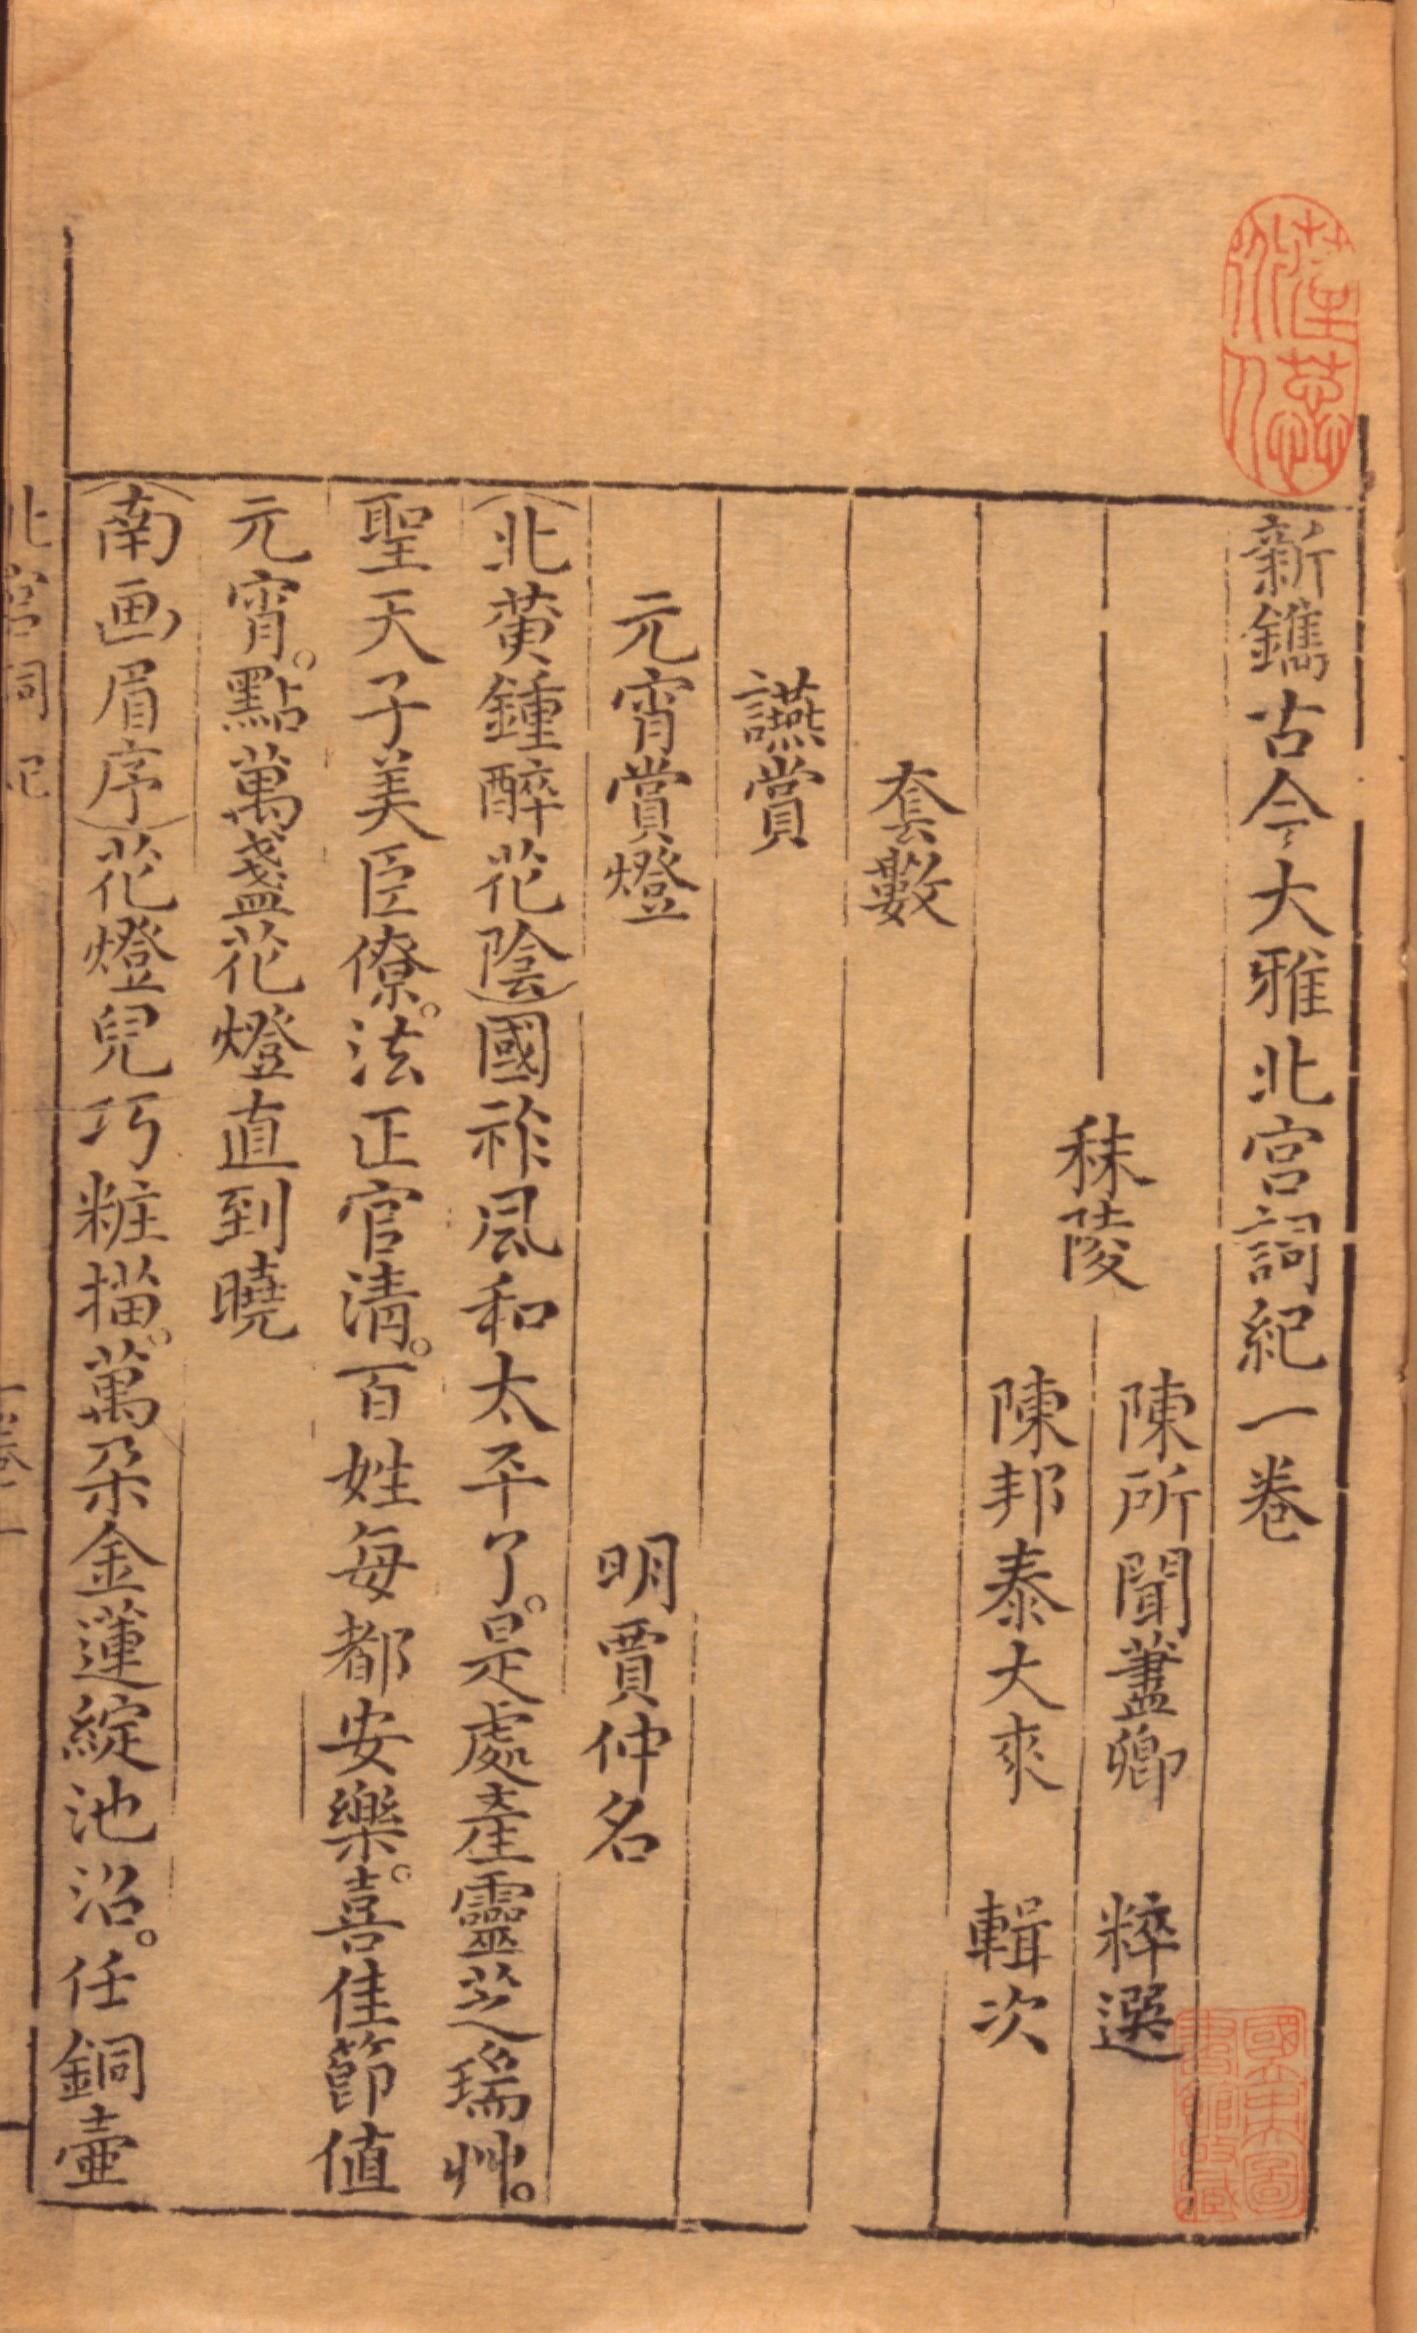 新鐫古今大雅北宮詞紀一卷
秣陵
陳所聞藎卿　粹選
陳邦泰大來　輯次
套數
讌賞
元宵賞燈　明賈仲名
（北黃鍾醉花陰）國祚風和太平了。是處產靈芝瑞艸。
聖天子美臣僚。法正官清。百姓每都安樂。喜佳節值
元宵。點萬盞花燈直到曉
（南画眉序）花燈兒巧粧描。萬朶金蓮綻池沼。任銅壷
國立中央圖書館收藏